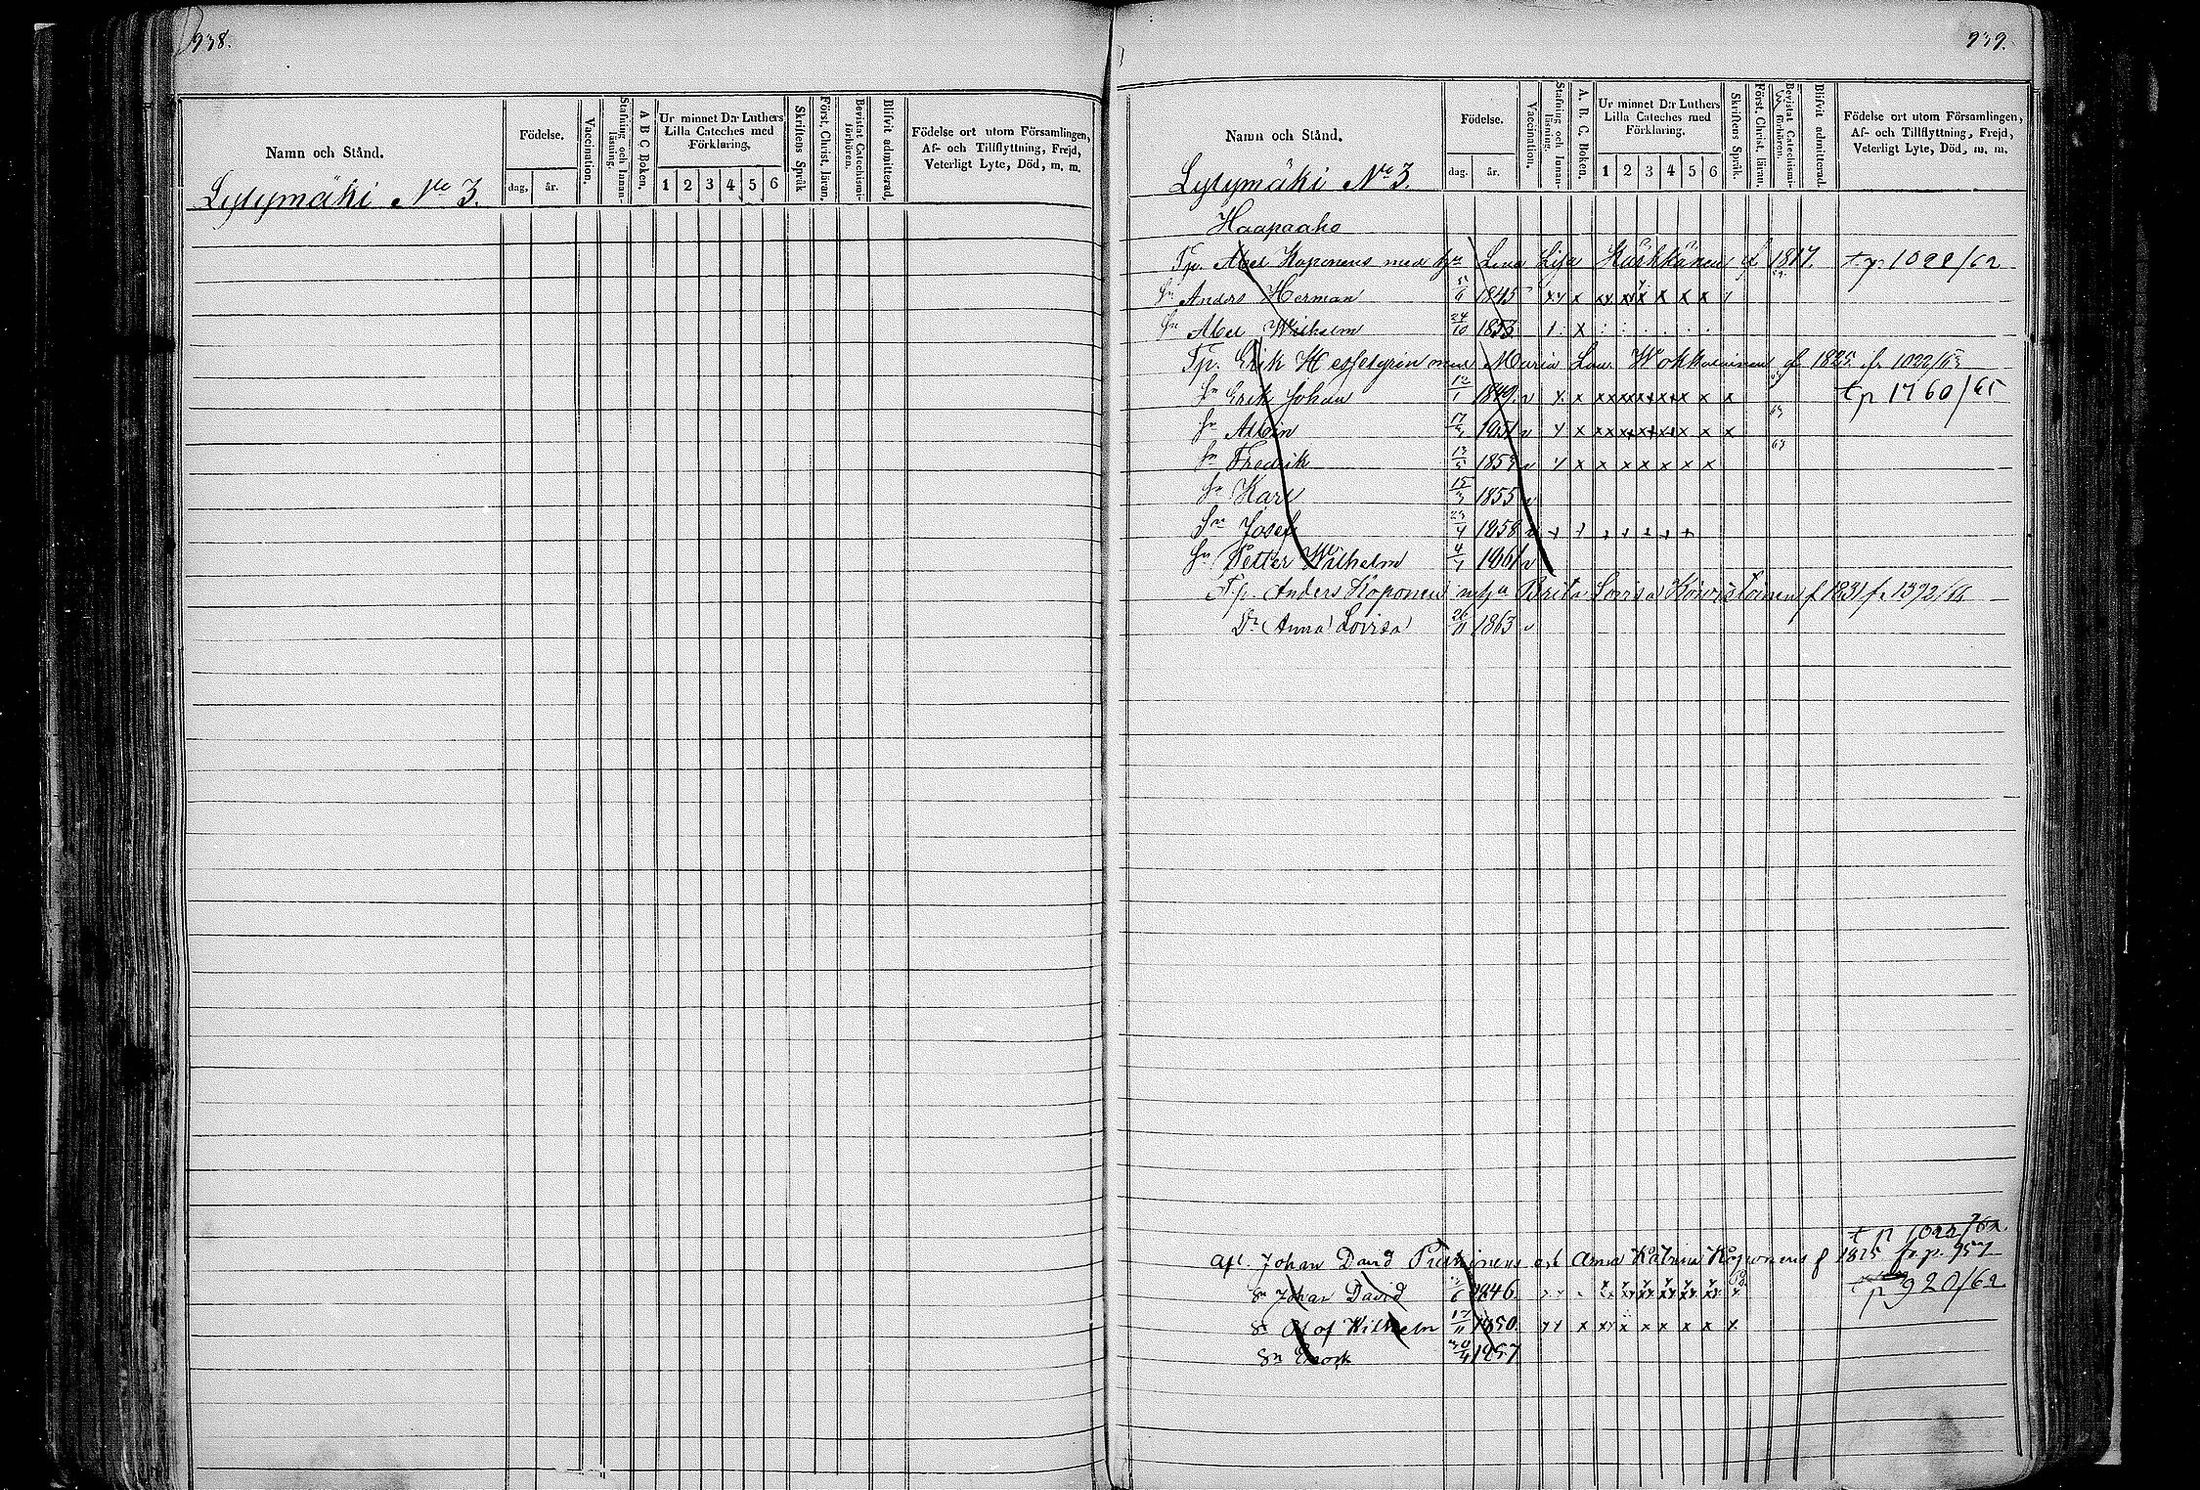 938.
Namn och Stånd.
Födelse.
dag.
år.
Vaccination.
Stafning och Innanläsning.
A B C Boken.
Ur minnet D:r Luthers Lilla Cateches med Förklaring.
1 2 3 4 5 6
Skriftens Språk
Först. Christ. läran.
Bevistat Catechismi-förhören.
Blifvit admitterad.
Födelse ort utom Församlingen,
Af- och Tillflyttning, Frejd,
Veterligt Lyte, Död, m. m.
Lylymäki No 3.
939.
Namn och Stånd.
Födelse.
dag.
år.
Vaccination.
Stafning och Innanläsning.
A. B. C. Boken.
Ur minnet D:r Luthers Lilla Cateches med Förklaring.
1 2 3 4 5 6
Skriftens Språk.
Först. Christ. läran.
Bevistat Catechismi-förhören.
Blifvit admitterad.
Födelse ort utom Församlingen,
Af- och Tillflyttning, Frejd,
Veterligt Lyte, Död, m. m.
Lylymäki No 3.
Haapaaho
Tp. Abel Koponens med hu Lena Lisa f 1817. tp 1022/62
Sn Anders Herman 5/6 1845
Sn Abel Wilhelm 24/10 1853
Tp. Erik med Maria f 1825 fr 1022/63
Sn Erik Johan 12/1 1849 tp 1760/65
Sn Albin 1851
Sn Fredrik 1853
Sn Karl 15/3 1855
Sn Josef 23/4 1858
Sn Petter Wilhelm 4/7 1861
Tp. Anders Koponen m hu Brita Lovisa f 1831 f. 1372/66
Dr Anna Lovisa 26/11 1863
tp 1022/62.
Afl. Johan David och Anna Katrina Koponens f 1825 fr p. 957
Sn Johan David 1846.
tp 920/62
Sn Olof Wilhelm 17/11 1850.
Sn Enock 30/4 1857